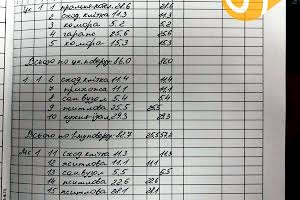 Цк 1 1 28.6 28.6
2 сход.клітка 11.3 11.3
3 комора 5.2 5.2
4 гараж 25.6 25.6
5 комора 15.3 15.3
Всього по цк.поверху 86.0 86.0
1 1 6 сходклітка 11.4 11.4
7 прихожа 11.1 11.1
8 сан.вузол 5.4 5.4
9 житлова 25.5 25.5
10 кухня-їдал 29.3 29.3
Всього по 1 му поверху 82.7 25.5 57.2
Мс 1 11 Сход клітка 11.3 11.3
12 житлова 11.1 11.1
13 сан.вузол 5.5 6.5
14 житлова 22.6 22.6
15 житлова 28.1 28.1